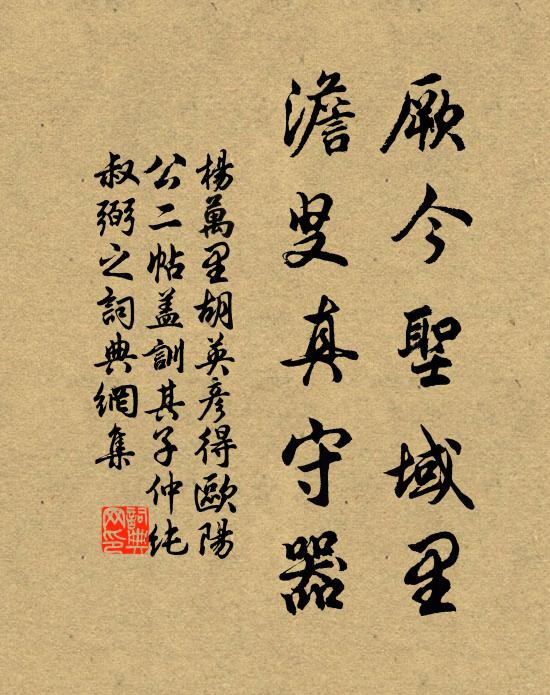 厥今聖域里
澹叟真守器
楊萬里胡英彥得歐陽
公二帖蓋訓其子仲純
叔弼之詞典網集
詞典網印